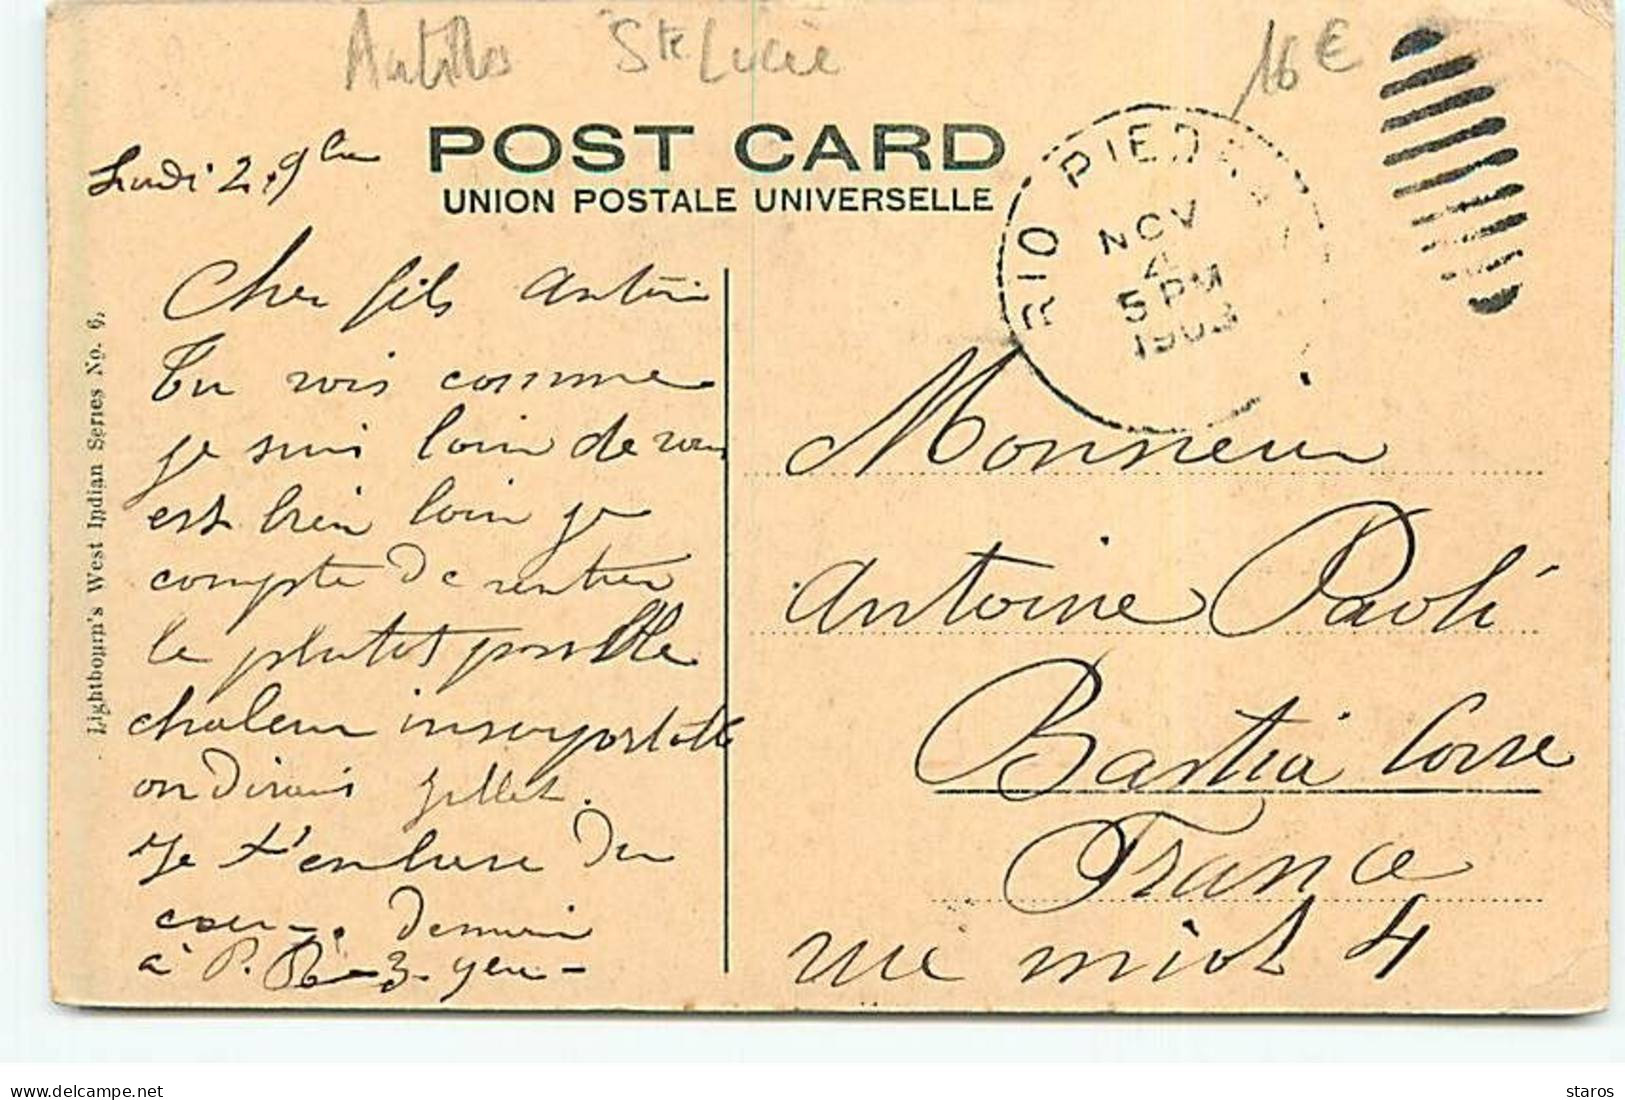 Antilles Ste Lucie 16€
POST CARD
UNION POSTALE UNIVERSELLE
RIO PIEDRAS
NOV
4
5 PM
1903
Lightbourn's West Indian Series No. 6.
Lundi 2. 9bre
Cher fils Antoine
Tu vois comme
je suis loin de vous
est bien loin je
compte de rentrer
le plutot possible
chaleur insuportable
on dirais juillet.
Je t'embrasse du
coeur. Demain
à P. R. 3.
Monsieur
Antoine Paoli
Bastia Corse
France
rue miot 4
staros
www.delcampe.net